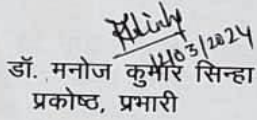 12/03/2024
डॉ. मनोज कुमार सिन्हा
प्रकोष्ठ, प्रभारी